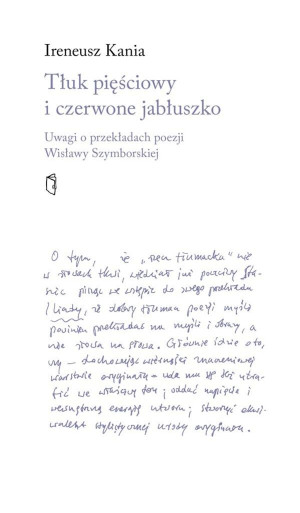 Ireneusz Kania
Tłuk pięściowy
i czerwone jabłuszko
Uwagi o przekładach poezji
Wisławy Szymborskiej
O tym, że „rzecz tłumacka” nie
w słowach tkwi, wiedział już poczciwy Sta-
szic pisząc we wstępie do swego przekładu
Iliady, iż dobry tłumacz poezji myśli
powinien przekładać na myśli i obrazy, a
nie słowa na słowa. Głównie idzie o to,
czy — dochowując wierności znaczeniowej
warstwie oryginału — uda mu się też utra-
fić we właściwy ton; oddać napięcie i
wewnętrzną energię utworu; stworzyć ekwi-
walent stylistycznej urody oryginału.